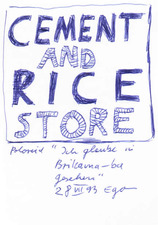 CEMENT
AND
RICE
STORE
Polaroid "Ich glaube in
Brikama-ba
gesehen"
28 VII 93 Ego